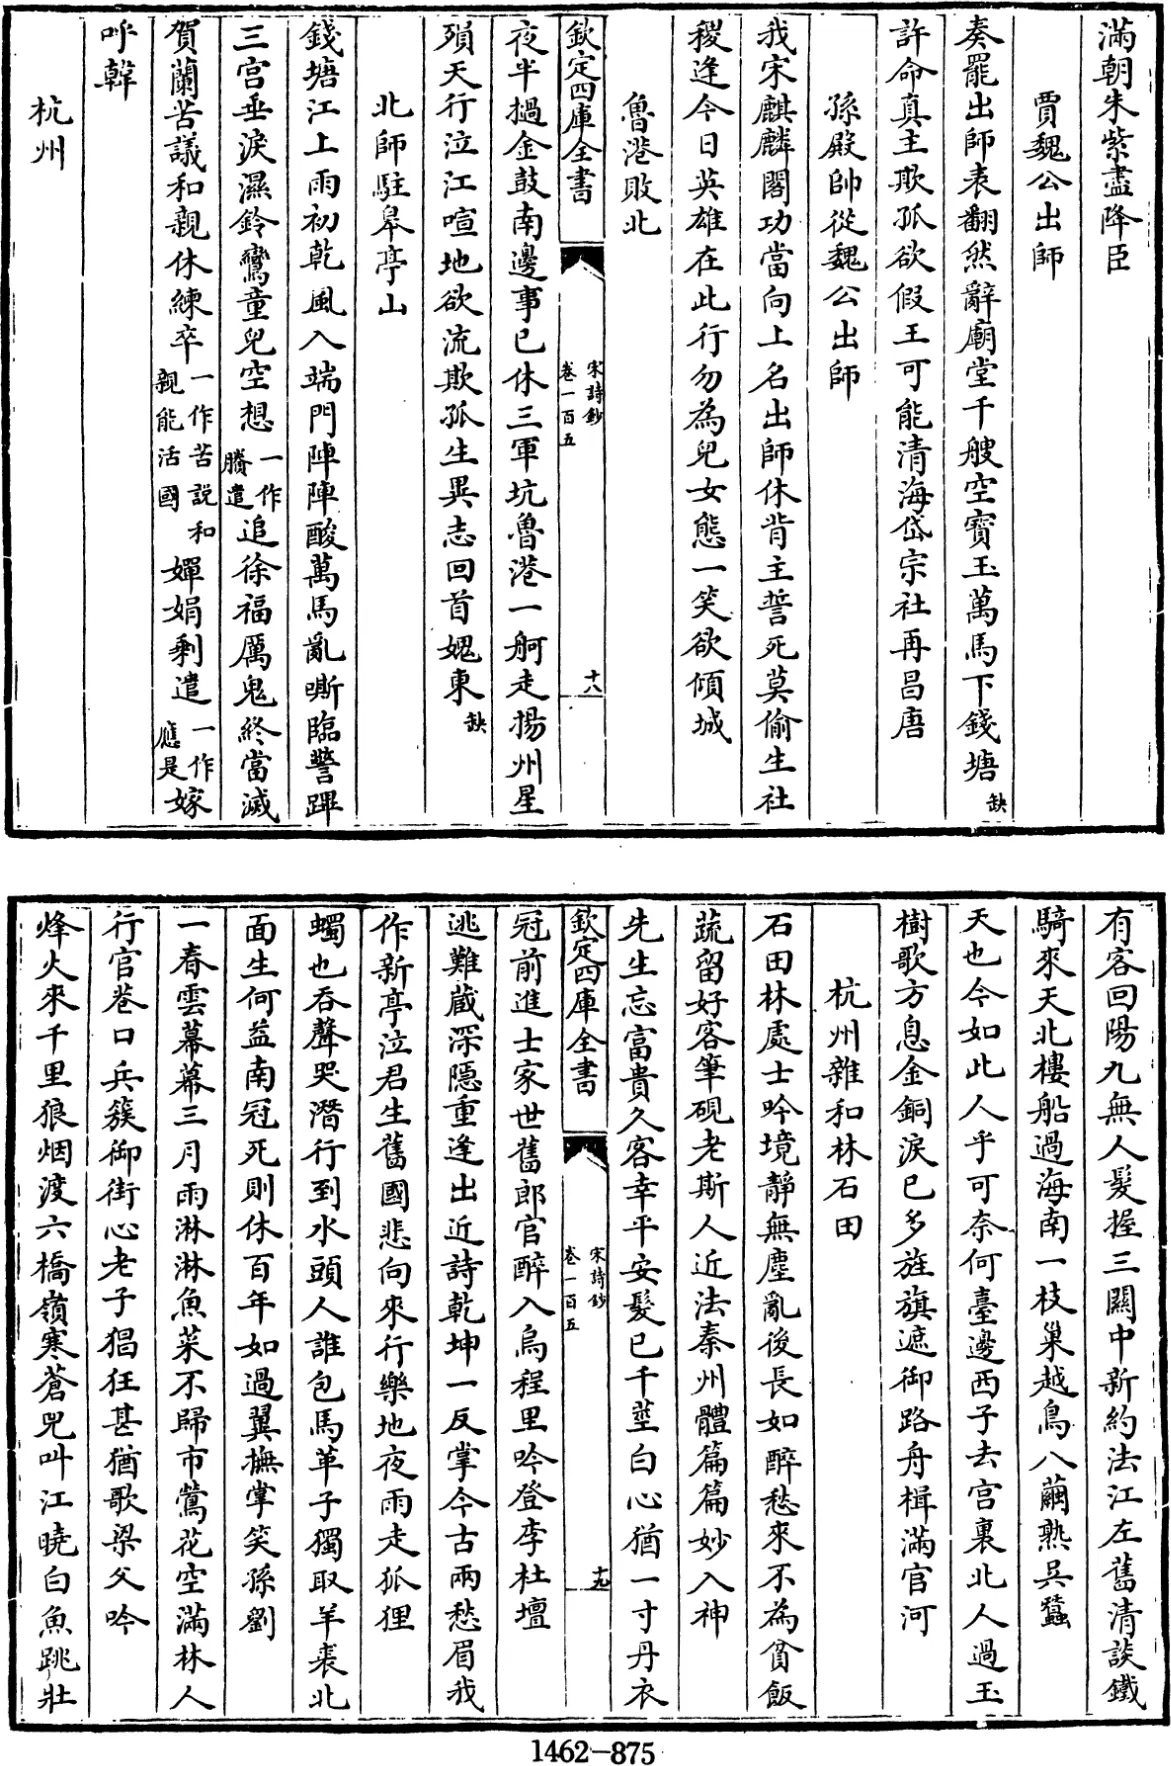 滿朝朱紫盡降臣
賈魏公出師
奏罷出師表翻然辭廟堂千艘空寶玉萬馬下錢塘缺
許命真主欺孤欲假王可能清海岱宗社再昌唐
孫殿帥從魏公出師
我宋麒麟閣功當向上名出師休背主誓死莫偷生社
稷逢今日英雄在此行勿為兒女態一笑欲傾城
魯港敗北
欽定四庫全書
宋詩鈔
卷一百五
十八
夜半撾金鼓南邊事已休三軍坑魯港一舸走揚州星
殞天行泣江喧地欲流欺孤生異志回首媿東缺
北師駐皋亭山
錢塘江上雨初乾風入端門陣陣酸萬馬亂嘶臨警蹕
三宫垂淚濕鈴鸞童兒空想一作賸遣追徐福厲鬼終當滅
賀蘭苦議和親休練卒一作苦説和親能活國嬋娟剩遣一作應是嫁
呼韓
杭州
有客回陽九無人髮握三關中新約法江左舊清談鐵
騎來天北樓船過海南一枝巢越鳥八繭熟吳蠶
天也今如此人乎可奈何臺邊西子去宫裏北人過玉
樹歌方息金銅淚已多旌旗遮御路舟楫滿官河
杭州雜和林石田
石田林處士吟境靜無塵亂後長如醉愁來不為貧飯
蔬留好客筆硯老斯人近法秦州體篇篇妙入神
先生忘富貴久客幸平安髮已千莖白心猶一寸丹衣
欽定四庫全書
宋詩鈔
卷一百五
十九
冠前進士家世舊郎官醉入烏程里吟登李杜壇
逃難藏深隱重逢出近詩乾坤一反掌今古兩愁眉我
作新亭泣君生舊國悲向來行樂地夜雨走狐狸
蠋也吞聲哭潛行到水頭人誰包馬革子獨取羊裘北
面生何益南冠死則休百年如過翼撫掌笑孫劉
一春雲幕幕三月雨淋淋魚菜不歸市鶯花空滿林人
行官巷口兵簇御街心老子猖狂甚猶歌梁父吟
烽火來千里狼烟渡六橋嶺寒蒼兕叫江曉白魚跳壯
1462-875